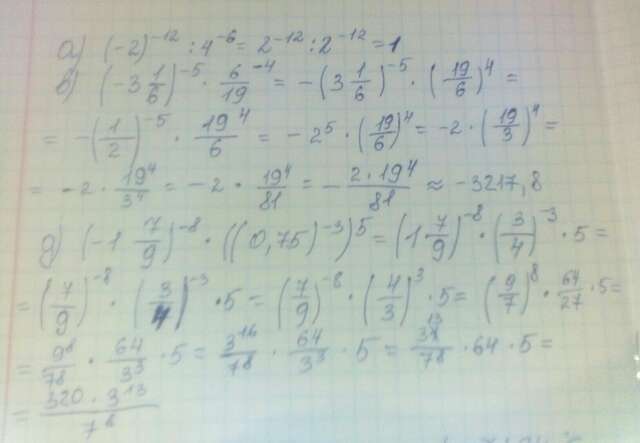 а) (-2)^-12 : 4^-6 = 2^-12 : 2^-12 = 1
в) (-3 1/6)^-5 · 6/19^-4 = -(3 1/6)^-5 · (19/6)^4 =
= -(1/2)^-5 · 19^4/6 = -2^5 · (19/6)^4 = -2 · (19/3)^4 =
= -2 · 19^4/3^4 = -2 · 19^4/81 = - 2·19^4/81 ≈ -3217,8
д) (-1 7/9)^-8 · ((0,75)^-3)^5 = (1 7/9)^-8 · (3/4)^-3 · 5 =
= (7/9)^-8 · (3/4)^-3 · 5 = (7/9)^-8 · (4/3)^3 · 5 = (9/7)^8 · 64/27 · 5 =
= 9^8/7^8 · 64/3^3 · 5 = 3^16/7^8 · 64/3^3 · 5 = 3^13/7^8 · 64 · 5 =
= 320 · 3^13/7^8